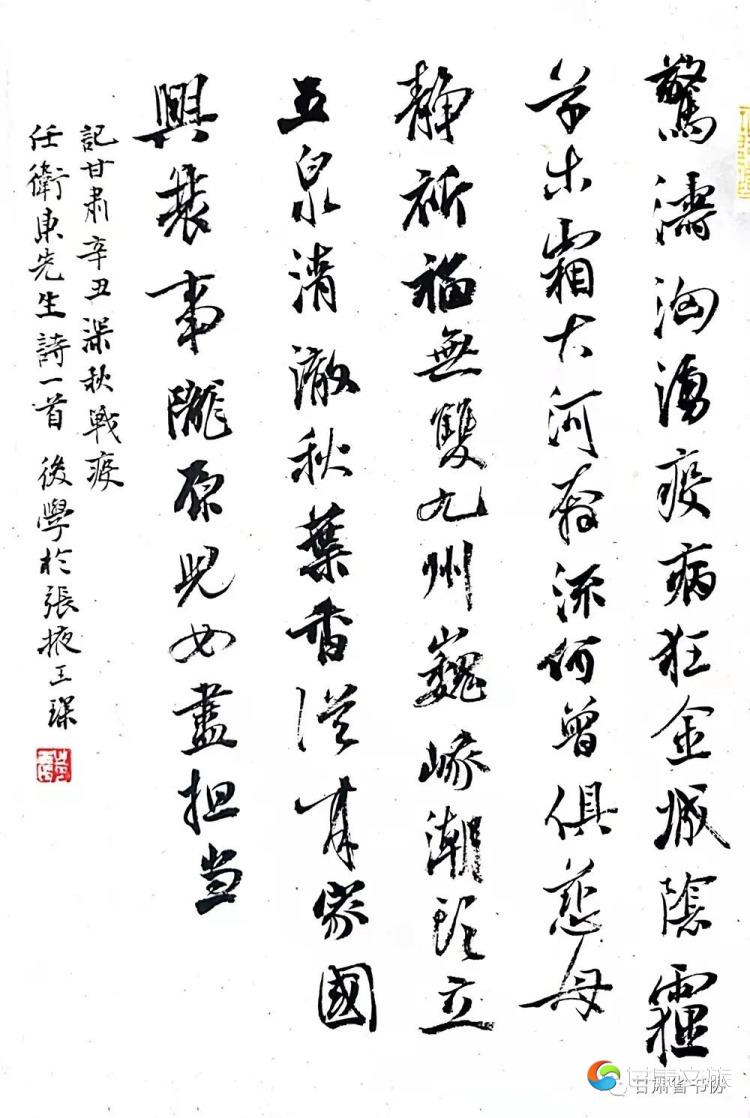 驚濤洶湧疫病狂金城陰霾
草木霜大河奔流何曾俱慈母
静祈福無雙九州巍峨潮頭立
五泉清澈秋葉香從来家國
興衰事隴原児女盡担当
記甘肃辛丑深秋戰疫
任衛東先生詩一首 後學於張掖王琛
甘肃省书协